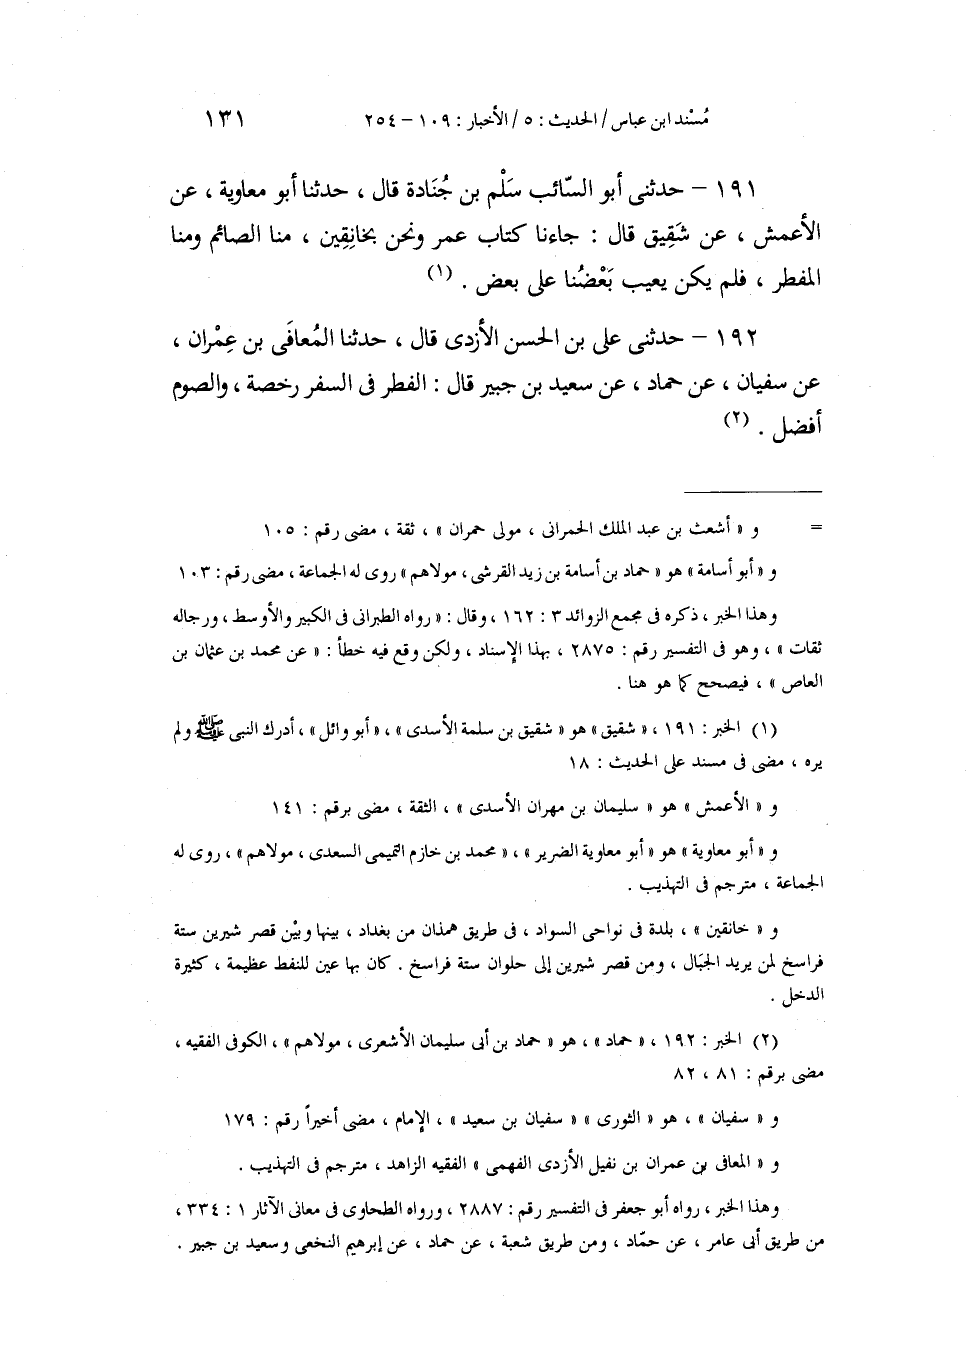 مُسْند ابن عباس / الحديث : ٥ / الأخبار : ١٠٩ – ٢٥٤ ١٣١
١٩١ – حدثنى أبو السّائب سَلْم بن جُنَادة قال ، حدثنا أبو معاوية ، عن
الأعمش ، عن شَقِيق قال : جاءنا كتاب عمر ونحن بخانِقِين ، منا الصائم ومنا
المفطر ، فلم يكن يعيب بَعْضُنا على بعض . (١)
١٩٢ – حدثنى على بن الحسن الأزدى قال ، حدثنا المُعافَى بن عِمْران ،
عن سفيان ، عن حماد ، عن سعيد بن جبير قال : الفطر فى السفر رخصة ، والصوم
أفضل . (٢)
= و « أشعث بن عبد الملك الحمرانى ، مولى حمران » ، ثقة ، مضى رقم : ١٠٥
و « أبو أسامة » هو « حماد بن أسامة بن زيد القرشى ، مولاهم » روى له الجماعة ، مضى رقم : ١٠٣
وهذا الخبر ، ذكره فى مجمع الزوائد ٣ : ١٦٢ ، وقال : « رواه الطبرانى فى الكبير والأوسط ، ورجاله
ثقات » ، وهو فى التفسير رقم : ٢٨٧٥ ، بهذا الإسناد ، ولكن وقع فيه خطأ : « عن محمد بن عثمان بن
العاص » ، فيصحح كما هو هنا .
(١) الخبر : ١٩١ ، « شقيق » هو « شقيق بن سلمة الأسدى » ، « أبو وائل » ، أدرك النبى ﷺ ولم
يره ، مضى فى مسند على الحديث : ١٨
و « الأعمش » هو « سليمان بن مهران الأسدى » ، الثقة ، مضى برقم : ١٤١
و « أبو معاوية » هو « أبو معاوية الضرير » ، « محمد بن خازم التميمى السعدى ، مولاهم » ، روى له
الجماعة ، مترجم فى التهذيب .
و « خانقين » ، بلدة فى نواحى السواد ، فى طريق همذان من بغداد ، بينها وبيْن قصر شيرين ستة
فراسخ لمن يريد الجبَال ، ومن قصر شيرين إلى حلوان ستة فراسخ . كان بها عين للنفط عظيمة ، كثيرة
الدخل .
(٢) الخبر : ١٩٢ ، « حماد » ، هو « حماد بن أبى سليمان الأشعرى ، مولاهم » ، الكوفى الفقيه ،
مضى برقم : ٨١ ، ٨٢
و « سفيان » ، هو « الثورى » « سفيان بن سعيد » ، الإمام ، مضى أخيراً رقم : ١٧٩
و « المعافى بن عمران بن نفيل الأزدى الفهمى » الفقيه الزاهد ، مترجم فى التهذيب .
وهذا الخبر ، رواه أبو جعفر فى التفسير رقم : ٢٨٨٧ ، ورواه الطحاوى فى معانى الآثار ١ : ٣٣٤ ،
من طريق أبى عامر ، عن حمّاد ، ومن طريق شعبة ، عن حماد ، عن إبرهيم النخعى وسعيد بن جبير .